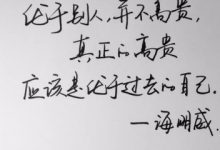 优于别人，并不高贵，
真正的高贵
应该是优于过去的自己.
—海明威